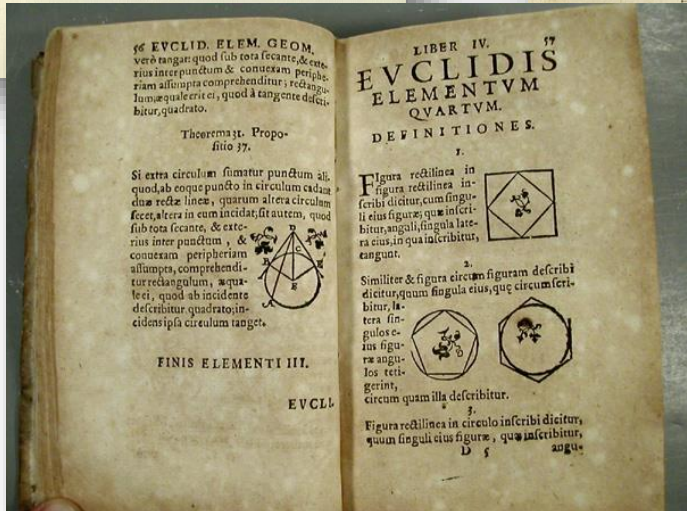 56 EVCLID. ELEM. GEOM.
verò tangat: quod sub tota secante, & exte-
rius inter punctum & conuexam periphe-
riam assumpta comprehenditur; rectangu-
lum, æquale erit ei, quod à tangente descri-
bitur, quadrato.
Theorema 31. Propo-
sitio 37.
Si extra circulum sumatur punctum ali-
quod, ab eoque puncto in circulum cadant
duæ rectæ lineæ, quarum altera circulum
secet, altera in eum incidat; sit autem, quod
sub tota secante, & exte-
rius inter punctum, &
conuexam peripheriam
assumpta, comprehendi-
tur rectangulum, æqua-
le ei, quod ab incidente
describitur quadrato; in-
cidens ipsa circulum tanget.
D
C
B
E
F
A
FINIS ELEMENTI III.
EVCLI.
LIBER IV. 57
EVCLIDIS
ELEMENTVM
QVARTVM.
DEFINITIONES.
1.
FIgura rectilinea in
figura rectilinea in-
scribi dicitur, cum singu-
li eius figuræ; quæ inscri-
bitur, anguli, singula late-
ra eius, in qua inscribitur,
tangunt.
2.
Similiter & figura circum figuram describi
dicitur, quum singula eius, quę circumscri-
bitur, la-
tera sin-
gulos e-
ius figu-
ræ angu-
los teti-
gerint,
circum quam illa describitur.
3.
Figura rectilinea in circulo inscribi dicitur,
quum singuli eius figuræ, quæ inscribitur,
D 5 angu-